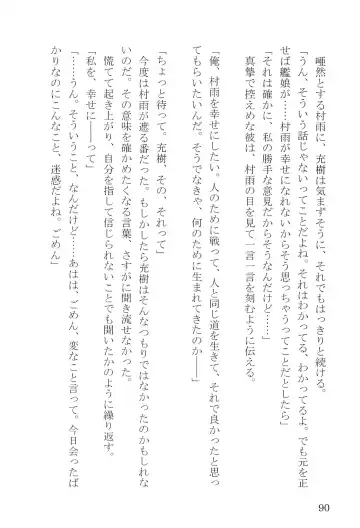 唖然とする村雨に、充樹は気まずそうに、それでもはっきりと続ける。
「うん、そういう話じゃないってことだよね。それはわかってる、わかってるよ。でも元を正
せば艦娘が……村雨が幸せになれないからそう思っちゃうってことだとしたら」
「それは確かに、私の勝手な意見だからそうなんだけど……」
真摯で控えめな彼は、村雨の目を見て一言一言を刻むように伝える。
「俺、村雨を幸せにしたい。人のために戦って、人と同じ道を生きて、それで良かったと思っ
てもらいたいんだ。そうでなきゃ、何のために生まれてきたのか――」
「ちょっと待って。充樹、その、それって」
今度は村雨が遮る番だった。もしかしたら充樹はそんなつもりではなかったのかもしれな
いのだ。その意味を確かめたくなる言葉、さすがに聞き流せなかった。
慌てて起き上がり、自分を指して信じられないことでも聞いたかのように繰り返す。
「私を、幸せに――って」
「……うん。そういうこと、なんだけど……あはは、ごめん、変なこと言って。今日会ったば
かりなのにこんなこと、迷惑だよね。ごめん」
90